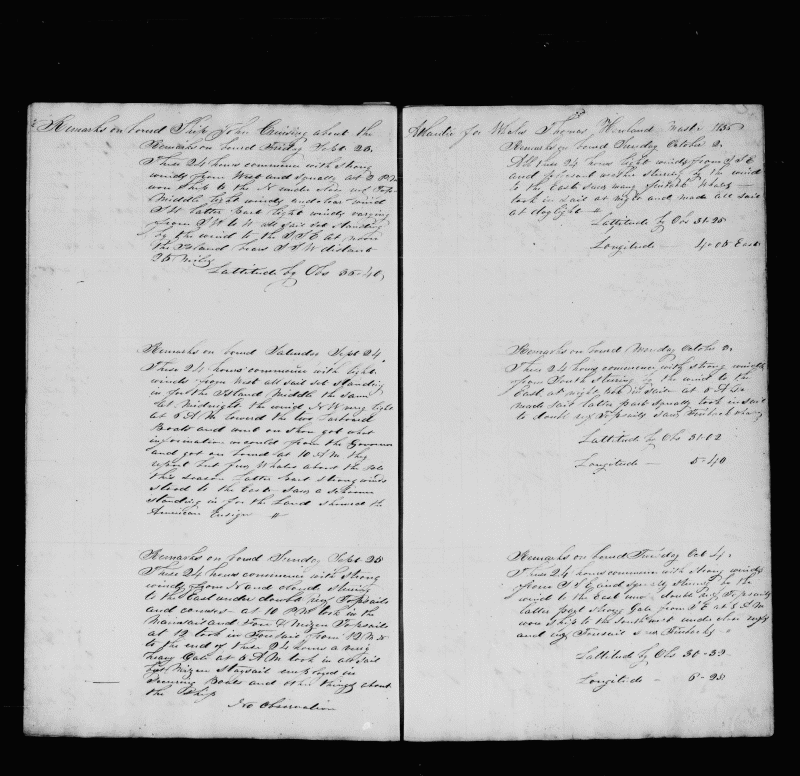 Remarks on bord Ship John Cruising about the
Remarks on bord Friday Sept 23,
These 24 hours commence with strong
winds from West and squally at 2 P.M
wore Ship to the N under
Middle light winds and clear wind
S.W. Latter part light winds varying
from S W to W all sail set standing
by the wind to the S S E at noon
the Island bore S S W distant
25 Miles
Lattitude by Obs 35-40,
Remarks on bord Saturday Sept 24,
These 24 hours commence with light
winds from West all sail set standing
in for the Island Middle the same
at Midnight the wind N W very light
at 6 A.M lowerd the two Larbord
Boats and went on shore got what
information we could from the Governor
and got on bord at 10 A.M they
report but few Whales about the
this season Latter part strong winds
stood to the East Saw a Schooner
standing in for the Land showed the
American Ensign
Remarks on bord Sunday Sept 25
These 24 hours commence with strong
winds from N and cloudy steering
to the East under double reef Topsails
and courses at 10 P.M took in the
Mainsail and Fore & Mizen Topsails
at 12 took in Foresail from 12
to the end of these 24 hours a very
heavy Gale at 5 A.M took in all sail
but Mizen Staysail employed in
securing Boats and other things about
the Ship
No Observation
Atlantic for Whales Thomas Howland Master 1835
Remarks on bord Sunday October 2,
All these 24 hours light winds from S S E
and pleasant weather steering by the wind
to the East Saw many Finback Whales
took in sail at night and made all sail
at daylight
Lattitude by Obs 31-25
Longitude 4-05 East
Remarks on bord Monday October 3,
These 24 hours commence with strong winds
from South steering by the wind to the
East at night took in sail at 5 A.M
made sail latter part squally took in sail
to double reef Topsails Saw Finback Whales
Lattitude by Obs 31-02
Longitude 5-40
Remarks on bord Tuesday Oct 4,
These 24 hours commence with strong winds
from S S E and squally steering by the
wind to the East under double reef Topsails
latter part strong Gale from S E at 8 A.M
wore ship to the Southwest under close reef
and reef Foresail saw Finbacks
Lattitude by Obs 30-39
Longitude 6-23